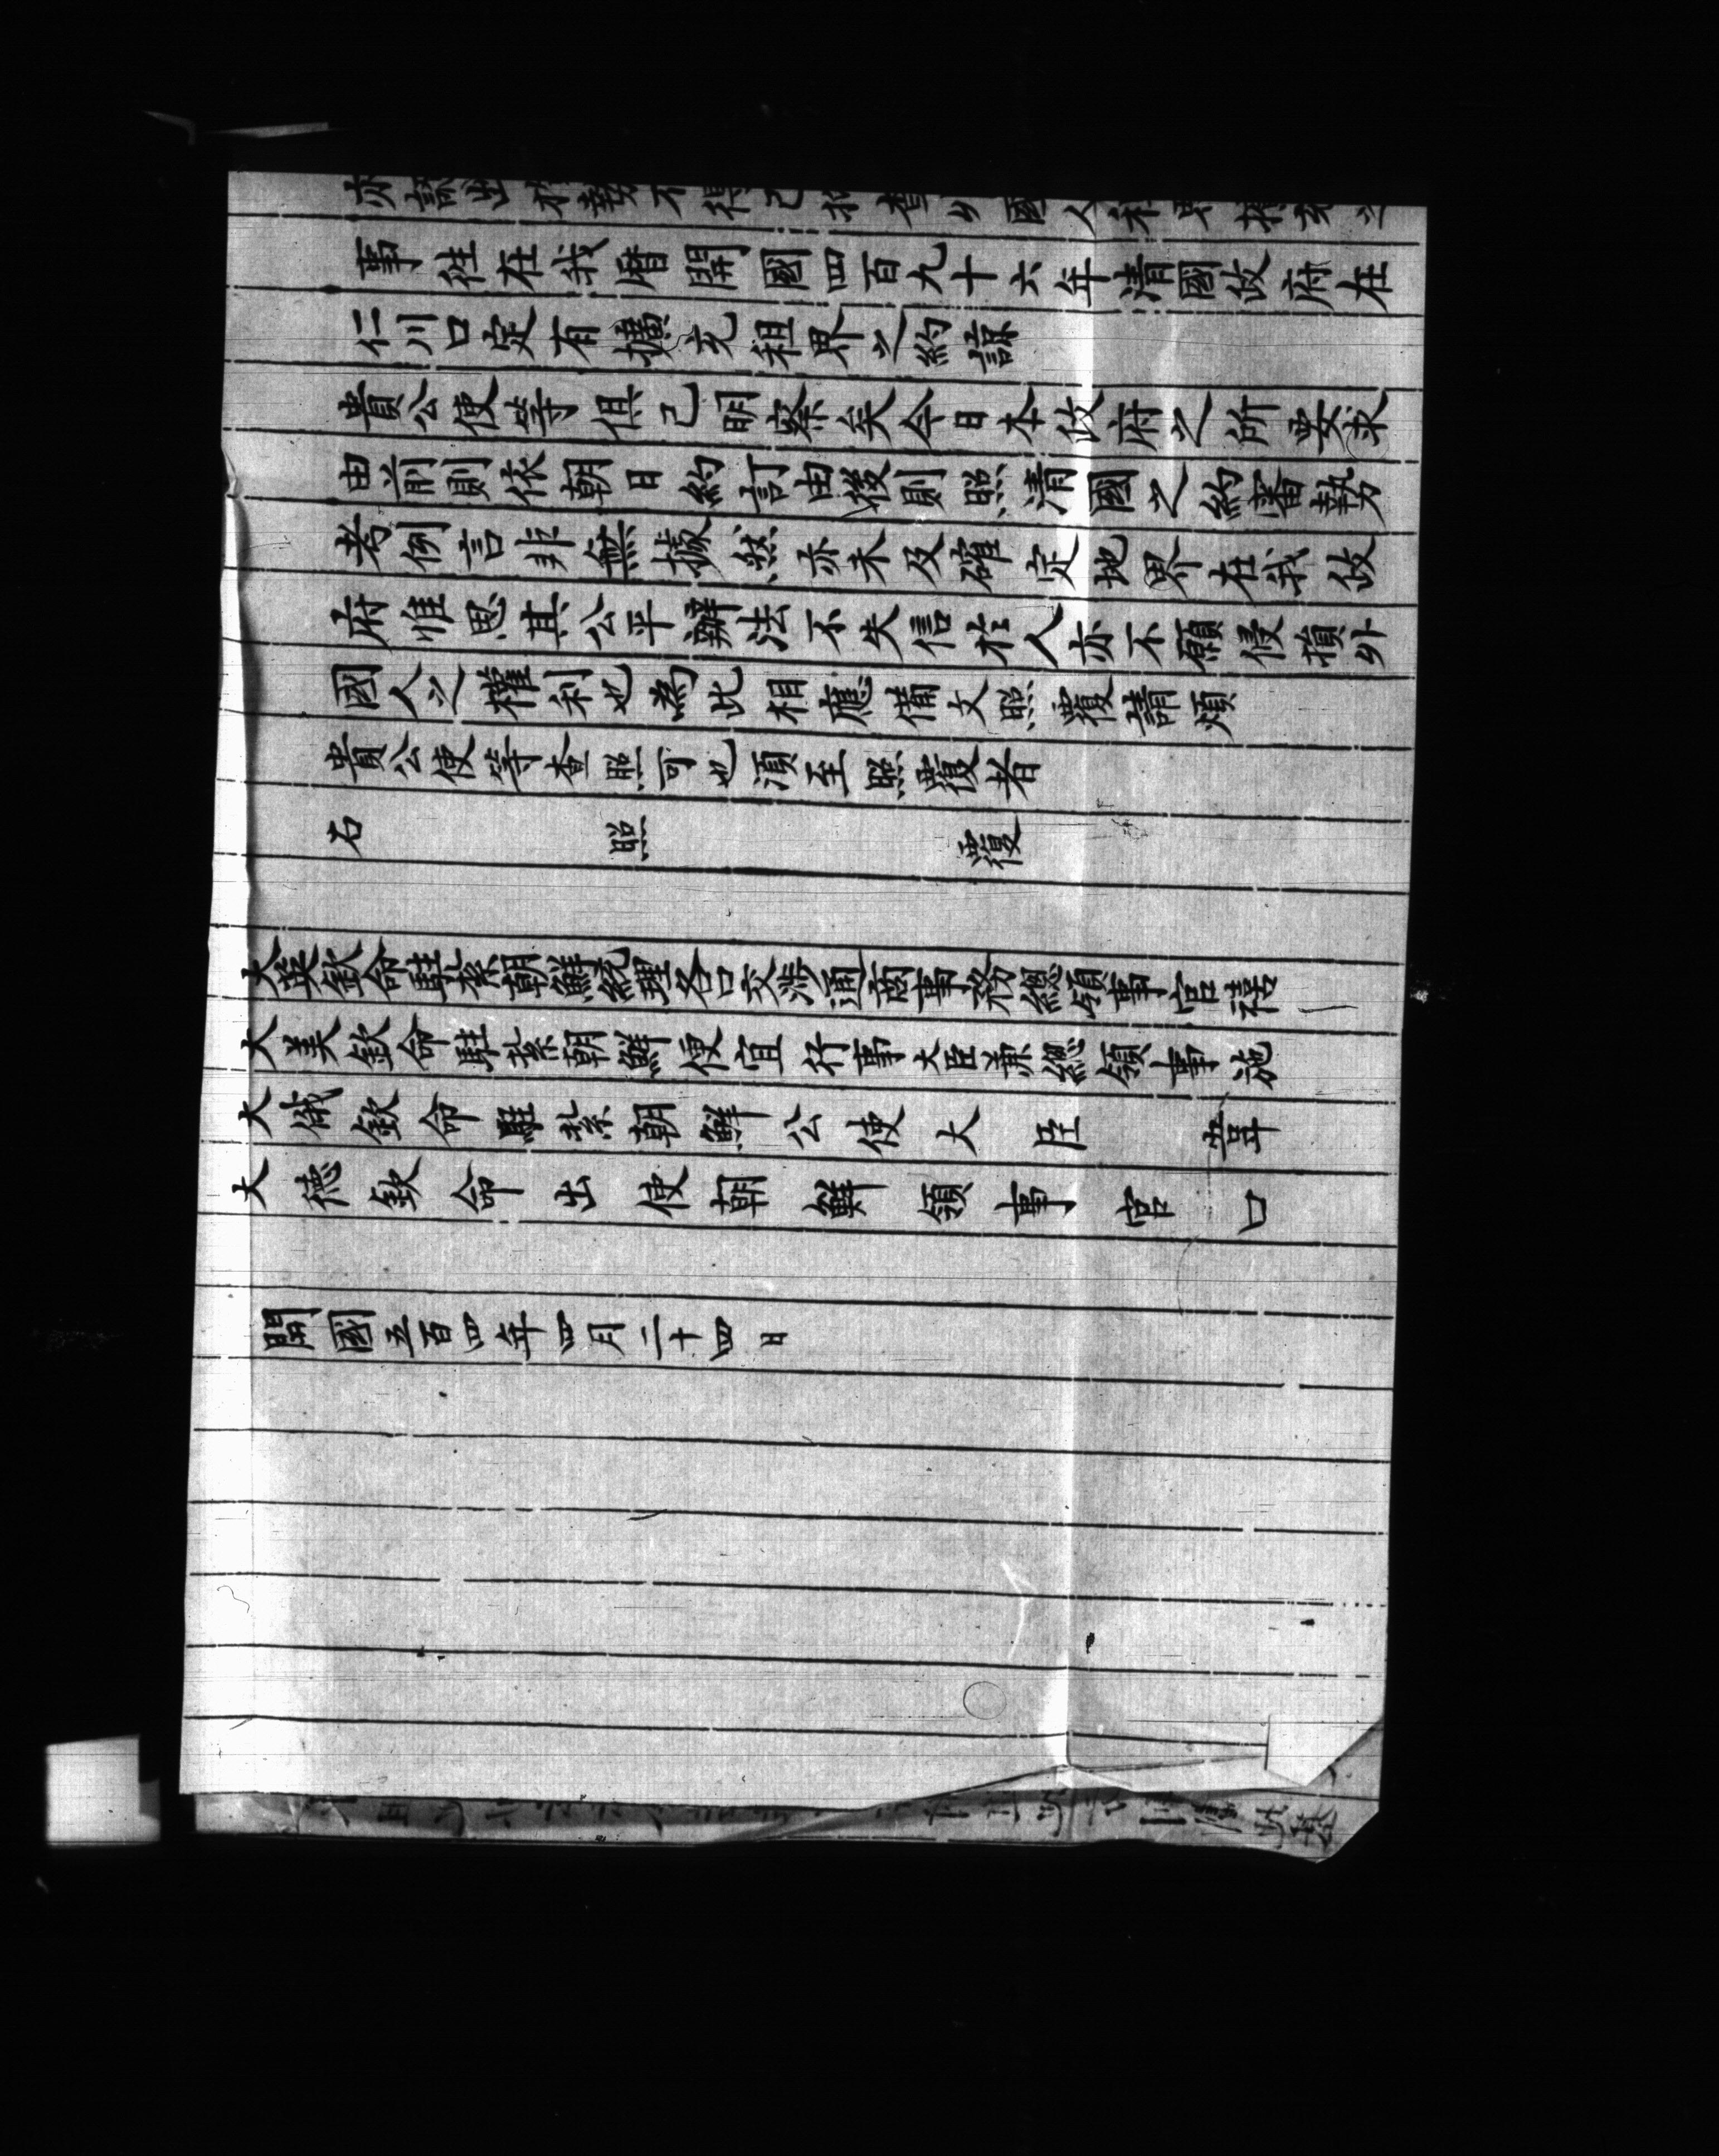 亦認出於勢不得已於查外國人租界擴充之
事往在我曆開國四百九十六年清國政府在
仁川口定有擴充租界之約諒
貴公使等俱已明察矣今日本政府之所要求
由前則依朝日約訂由後則照清國之約審勢
考例言非無據然亦未及確定地界在我政
府惟思其公平辦法不失信於人亦不願侵損外
國人之權利也為此相應備文照覆請煩
貴公使等查照可也須至照覆者
右照覆
大英欽命駐紮朝鮮統理各口交涉通商事務總領事官禧
大美欽命駐紮朝鮮便宜行事大臣兼總領事施
大俄欽命駐紮朝鮮公使大臣韋
大德欽命出使朝鮮領事官口
開國五百四年四月二十四日